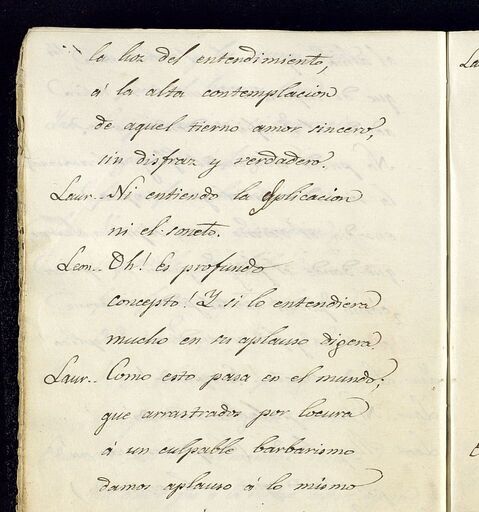 la luz del entendimiento,
á la alta contemplacion
de aquel tierno amor sincero,
sin disfraz y verdadero.
Laur.. Ni entiendo la esplicacion
ni el soneto.
Leon.. Oh! Es profundo
concepto! Y si lo entendiera
mucho en su aplauso digera.
Laur.. Como esto pasa en el mundo;
que arrastrados por locura
á un culpable barbarismo
damos aplauso á lo mismo
La